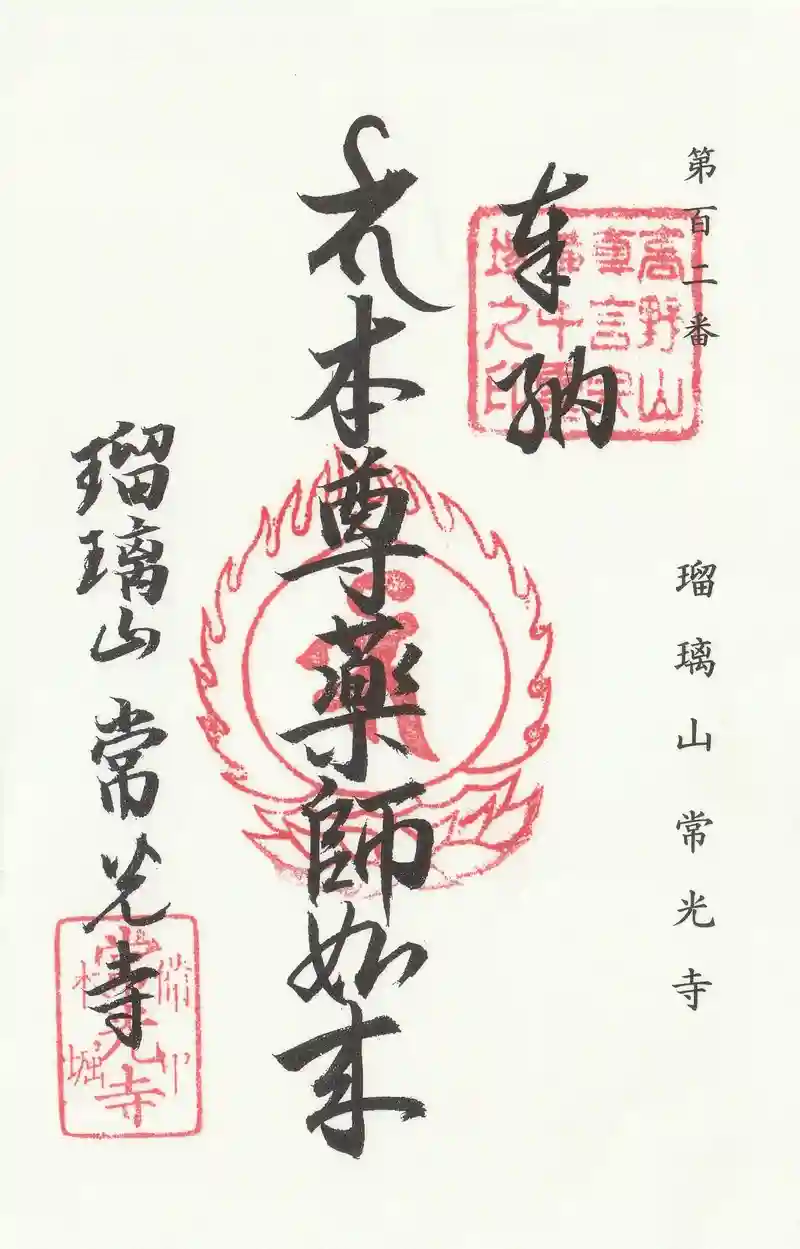 第百二番
瑠璃山常光寺
奉納
高野山
真言宗
千霊
場之印
礼本尊薬師如来
瑠璃山常光寺
常光寺